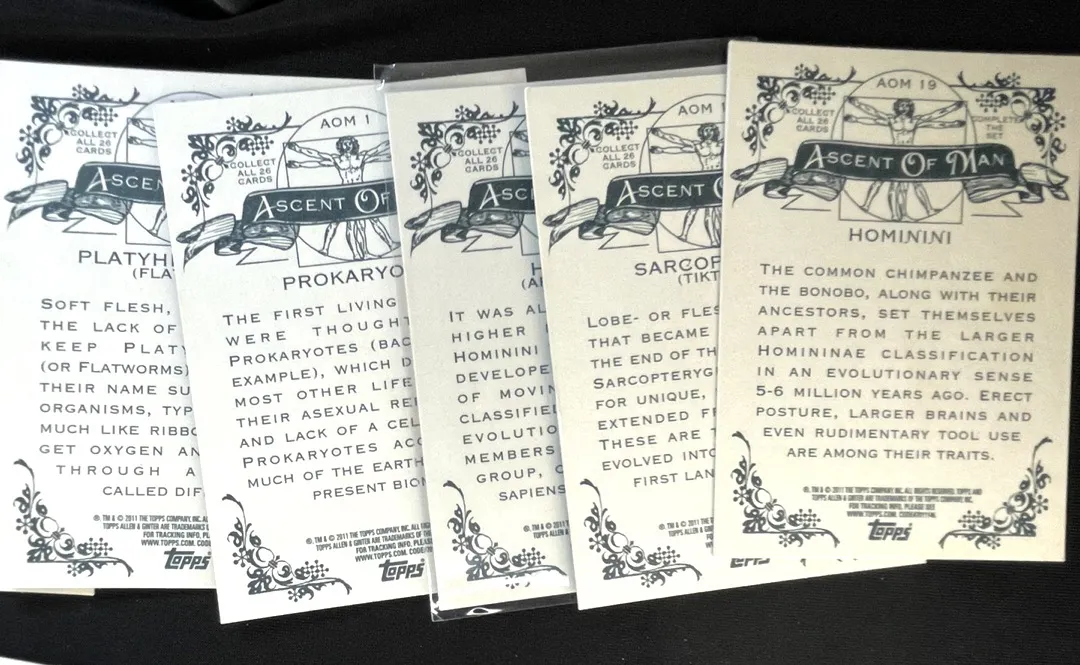 COLLECT
ALL 26
CARDS
ASCEN
PLATYH
(FLA
SOFT FLESH,
THE LACK OF
KEEP PLATY
(OR FLATWORMS)
THEIR NAME SU
ORGANISMS, TYP
MUCH LIKE RIBBO
GET OXYGEN AN
THROUGH A
CALLED DIF
®, TM & © 2011 THE TOPPS COMPANY, INC. AL
TOPPS ALLEN & GINTER ARE TRADEMARKS
FOR TRACKING INFO, PL
WWW.TOPPS.COM. CODE
Topps
AOM 1
COLLECT
ALL 26
CARDS
ASCENT OF
PROKARYO
THE FIRST LIVING
WERE THOUGHT
PROKARYOTES (BAC
EXAMPLE), WHICH D
MOST OTHER LIFE
THEIR ASEXUAL RE
AND LACK OF A CEL
PROKARYOTES ACC
MUCH OF THE EARTH
PRESENT BION
®, TM & © 2011 THE TOPPS COMPANY, INC. ALL
TOPPS ALLEN & GINTER ARE TRADEMARKS
FOR TRACKING INFO, PLEA
WWW.TOPPS.COM. CODE
Topps
COLLECT
ALL 26
CARDS
ASC
H
(A
IT WAS AL
HIGHER
HOMININI
DEVELOPE
OF MOVIN
CLASSIFIE
EVOLUTIO
MEMBERS
GROUP, C
SAPIENS
®, TM & © 2011
TOPPS ALLEN &
FOR
WWW
AOM 1
COLLECT
ALL 26
CARDS
ASCENT
SARCOP
(TIKT
LOBE- OR FLES
THAT BECAME
THE END OF TH
SARCOPTERYG
FOR UNIQUE,
EXTENDED F
THESE ARE T
EVOLVED INTO
FIRST LAN
®, TM & © 2011
AOM 19
COLLECT
ALL 26
CARDS
COMPLETE
THE
SET
ASCENT OF MAN
HOMININI
THE COMMON CHIMPANZEE AND
THE BONOBO, ALONG WITH THEIR
ANCESTORS, SET THEMSELVES
APART FROM THE LARGER
HOMININAE CLASSIFICATION
IN AN EVOLUTIONARY SENSE
5-6 MILLION YEARS AGO. ERECT
POSTURE, LARGER BRAINS AND
EVEN RUDIMENTARY TOOL USE
ARE AMONG THEIR TRAITS.
®, TM & © 2011 THE TOPPS COMPANY, INC. ALL RIGHTS RESERVED. TOPPS AND
TOPPS ALLEN & GINTER ARE TRADEMARKS OF THE TOPPS COMPANY, INC.
FOR TRACKING INFO, PLEASE SEE
WWW.TOPPS.COM.
Topps